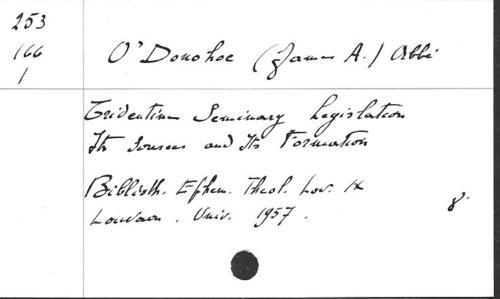 253
166
1
O'Donohoe (James A.) Abbé
Tridentine Seminary Legislation
Its Sources and Its Formation
Biblioth. Ephem. Theol. Lov. IX
Louvain. Univ. 1957.
8°